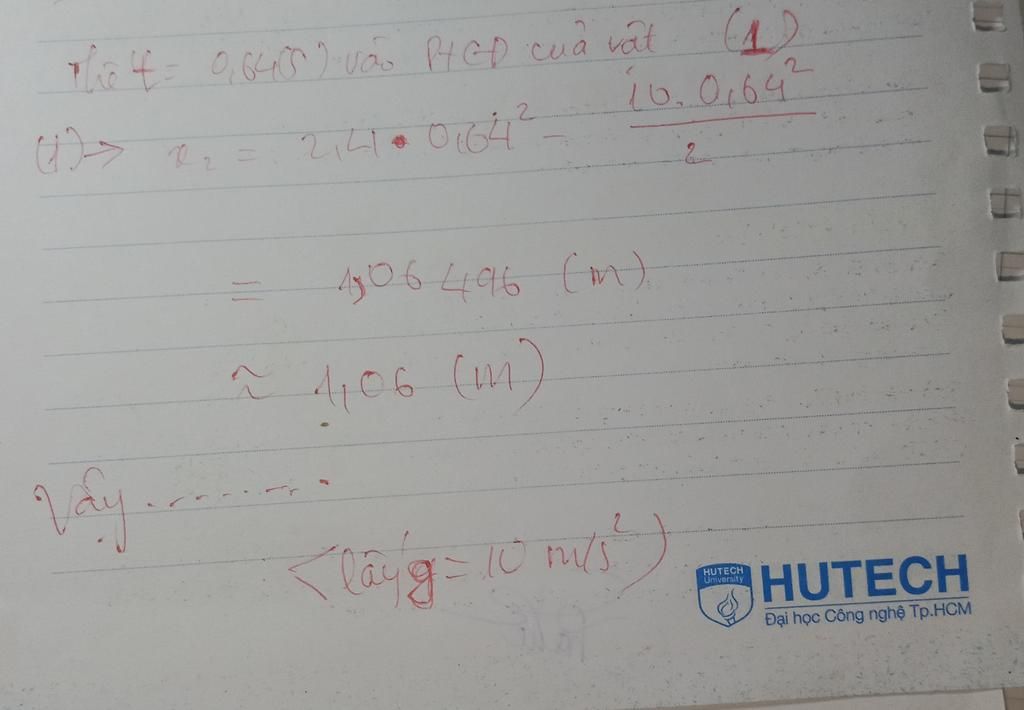 Thế t = 0,64(s) vào PTCĐ của vật (1)
(1) → x₂ = 2,4 • 0,64² - \frac{10.0,64²}{2}
= 1,06496 (m)
≈ 1,06 (m)
Vậy ........
<lấy g = 10 m/s²)
HUTECH
University
HUTECH
Đại học Công nghệ Tp.HCM